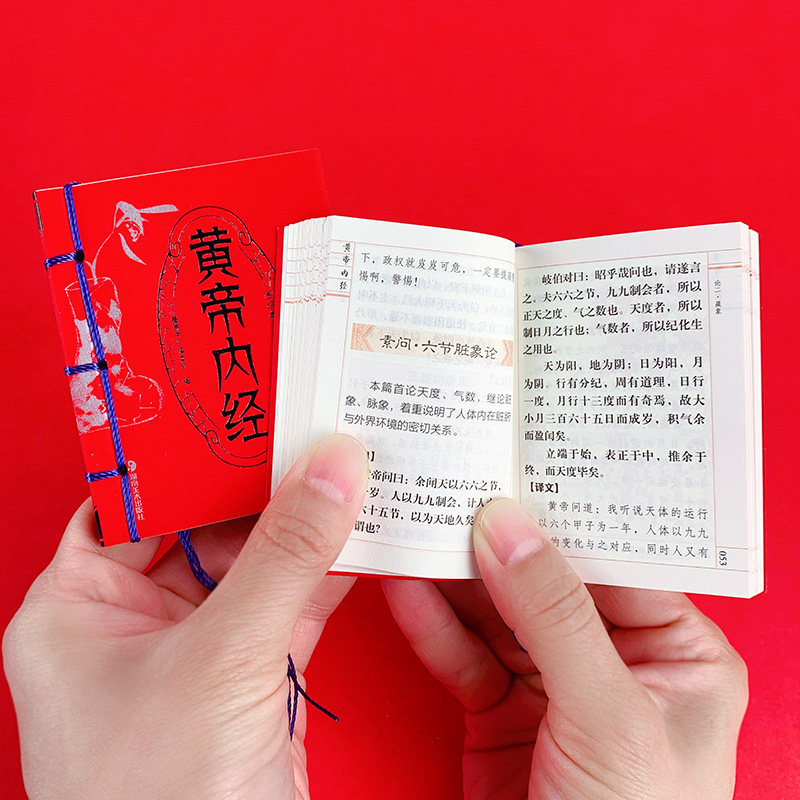 黄帝内经
湖南美术出版社
黄帝内经
下，政权就岌岌可危，一定要提高
惕啊，警惕！
素问·六节脏象论
本篇首论天度、气数，继论脏
象、脉象，着重说明了人体内在脏腑
与外界环境的密切关系。
帝问曰：余闻天以六六之节，
岁。人以九九制会，计人
六十五节，以为天地久矣
谓也？
论二·藏象
岐伯对曰：昭乎哉问也，请遂言
之。夫六六之节，九九制会者，所以
正天之度、气之数也。天度者，所以
制日月之行也；气数者，所以纪化生
之用也。
天为阳，地为阴；日为阳，月
为阴。行有分纪，周有道理，日行
一度，月行十三度而有奇焉，故大
小月三百六十五日而成岁，积气余
而盈闰矣。
立端于始，表正于中，推余于
终，而天度毕矣。
【译文】
黄帝问道：我听说天体的运行
以六个甲子为一年，人体以九九
的变化与之对应，同时人又有
053